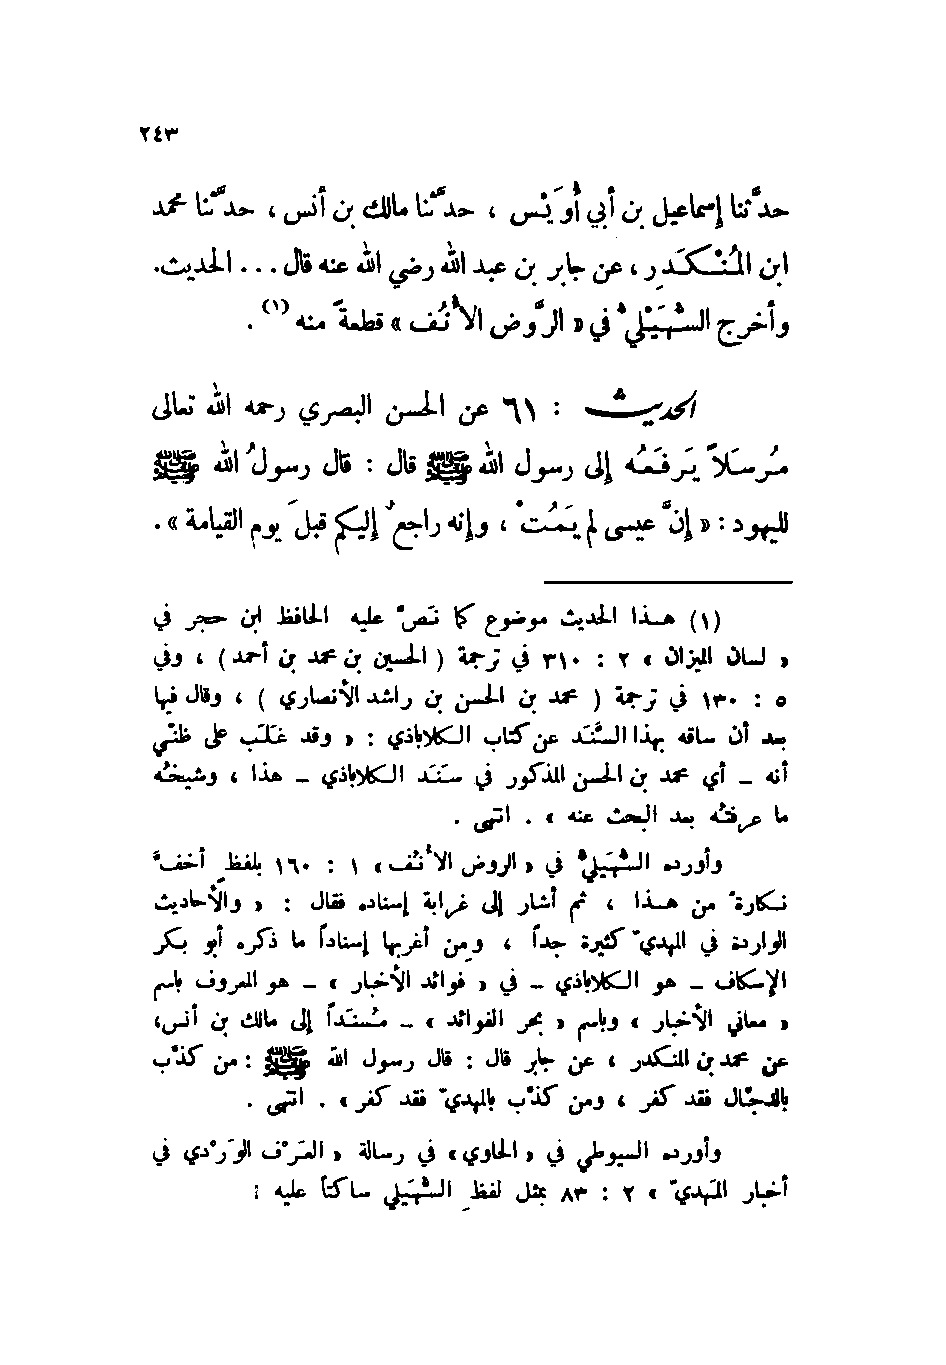 ٢٤٣
حدَّثنا إسماعيل بن أبي أُوَيْس ، حدَّثَنا مالك بن أنس ، حدَّثَنا محمد
ابن المُنْكَدِر ، عن جابر بن عبد الله رضي الله عنه قال ... الحديث.
وأخرج السُّهَيْليُّ في « الرَّوض الأُنُف » قطعةً منه (١) .
الحديث : ٦١ عن الحسن البصري رحمه الله تعالى
مُرسَلاً يَرفَعُه إلى رسول الله ﷺ قال : قال رسولُ الله ﷺ
لليهود : « إنَّ عيسى لم يَمُتْ ، وإنه راجعٌ إليكم قبلَ يوم القيامة » .
(١) هـذا الحديث موضوع كما نَصَّ عليه الحافظ ابن حجر في
« لسان الميزان » ٢ : ٣١٠ في ترجمة ( الحسين بن محمد بن أحمد ) ، وفي
٥ : ١٣٠ في ترجمة ( محمد بن الحسن بن راشد الأنصاري ) ، وقال فيها
بعد أن ساقه بهذا السَّنَد عن كتاب الكلاباذي : « وقد غَلَب على ظنّي
أنه – أي محمد بن الحسن المذكور في سَنَد الكلاباذي – هذا ، وشيخُه
ما عرفتُه بعد البحث عنه » . انتهى .
وأورده السُّهَيْليُّ في « الروض الأُنُف » ١ : ١٦٠ بلفظٍ أخفَّ
نكارةً من هـذا ، ثم أشار إلى غرابة إسناده فقال : « والأحاديث
الواردة في المهديّ كثيرة جداً ، ومِن أغربها إسناداً ما ذكره أبو بكر
الإسكاف – هو الكلاباذي – في « فوائد الأخبار » – هو المعروف باسم
« معاني الأخبار » وباسم « بحر الفوائد » – مُسنَداً إلى مالك بن أنس،
عن محمد بن المنكدر ، عن جابر قال : قال رسول الله ﷺ : من كذَّب
بالدجّال فقد كفر ، ومن كذَّب بالمهديّ فقد كفر » . انتهى .
وأورده السيوطي في « الحاوي » في رسالة « العَرْف الوَرْدي في
أخبار المَهديّ » ٢ : ٨٣ بمثل لفظِ السُّهَيلي ساكتاً عليه !